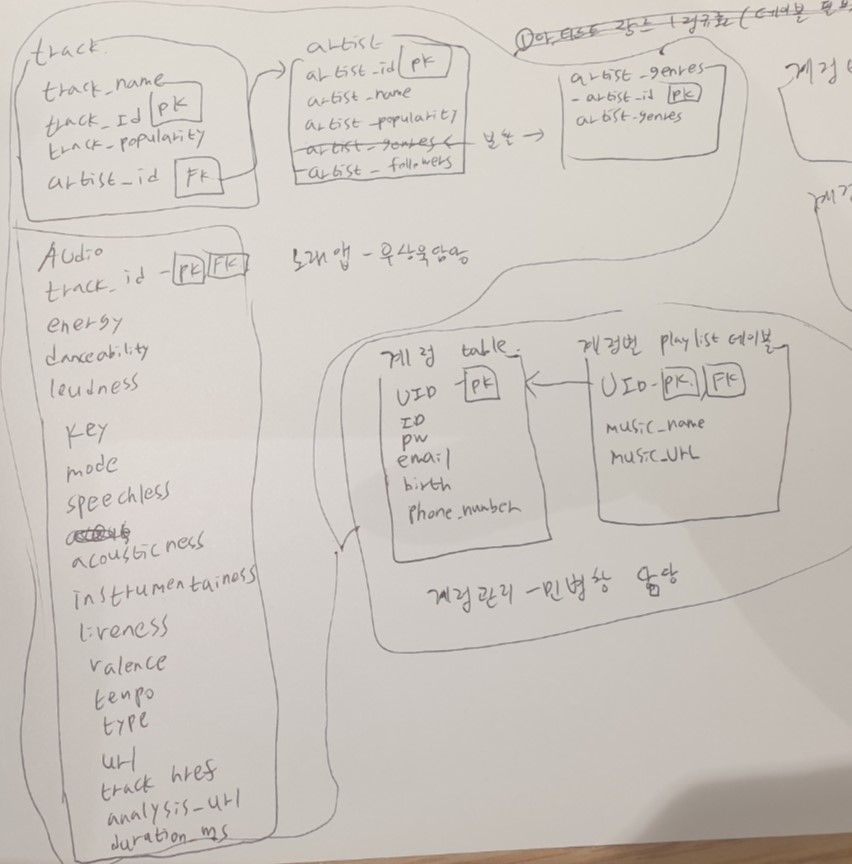 track
track_name
track_Id PK
track_popularity
artist_id FK
artist
artist_id PK
artist_name
artist_popularity
artist_genres
artist_followers
분논 →
artist_genres
- artist_id PK
artist-genres
계정
계정
Audio
track_id - PK FK
energy
danceability
leudness
key
mode
speechless
acousticness
instrumentainess
liveness
valence
tempo
type
url
track href
analysis_url
duration_ms
노래 앱 - 우상욱 담당
계정 table
UID - PK
ID
pw
email
birth
phone_number
계정별 playlist 테이블
UID - PK, FK
music_name
music_url
계정관리 - 민범창 담당